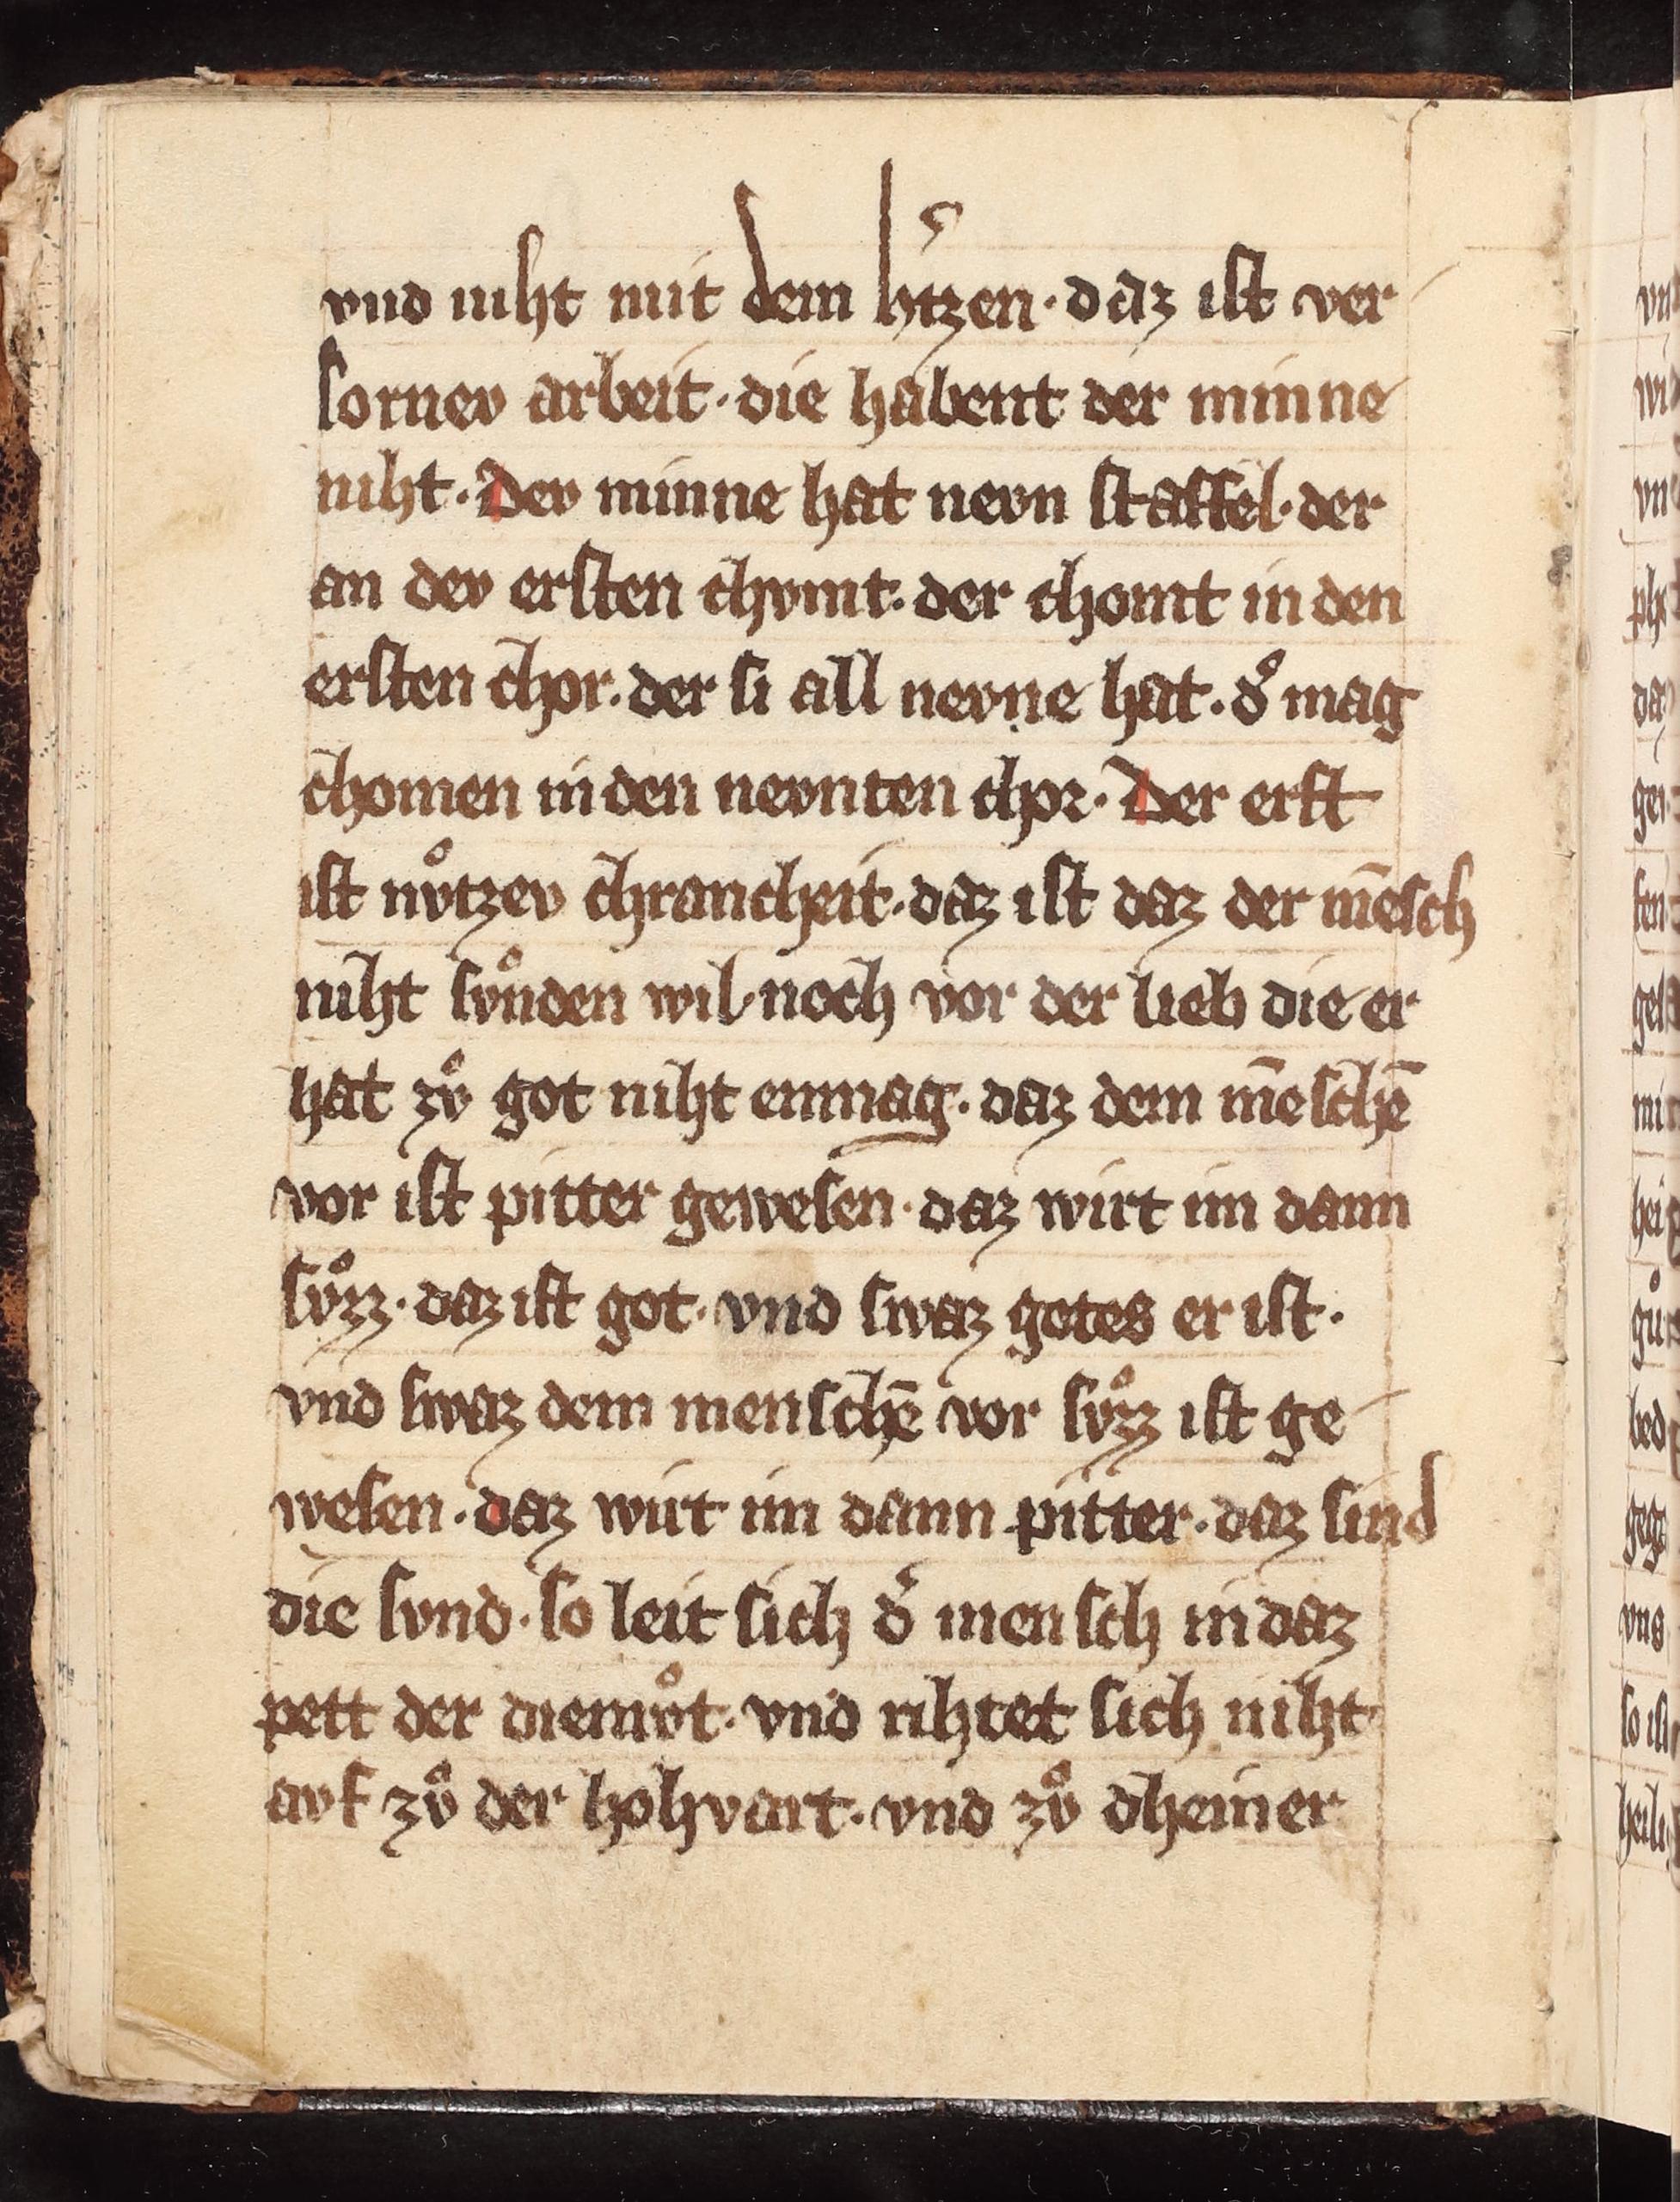 vnd niht mit dem h'tzen · daz ist ver
lornev arbeit · die habent der minne
niht · Dev minne hat nevn staffel · der
an dev ersten chvmt · der chomt in den
ersten chor · der si all nevne hat · d' mag
chomen in den nevnten chor · Der erst
ist nvͦtzev chrancheit · daz ist daz der mēsch
niht svͦnden wil · noch vor der lieb die er
hat zvͦ got niht enmag · daz dem mēschē
vor ist pitter gewesen · daz wirt im dann
svͦzz · daz ist got · vnd swaz gotes er ist ·
vnd swaz dem menschē vor svͦzz ist ge
wesen · daz wirt im dann pitter · daz sind
die svnd · so leit sich d' mensch in daz
pett der diemvͦt · vnd rihtet sich niht
avf zvͦ der hohvart · vnd zvͦ dheiner